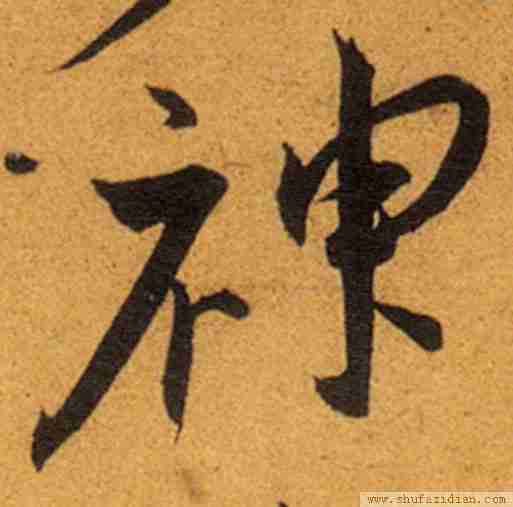 神
www.shufazidian.com